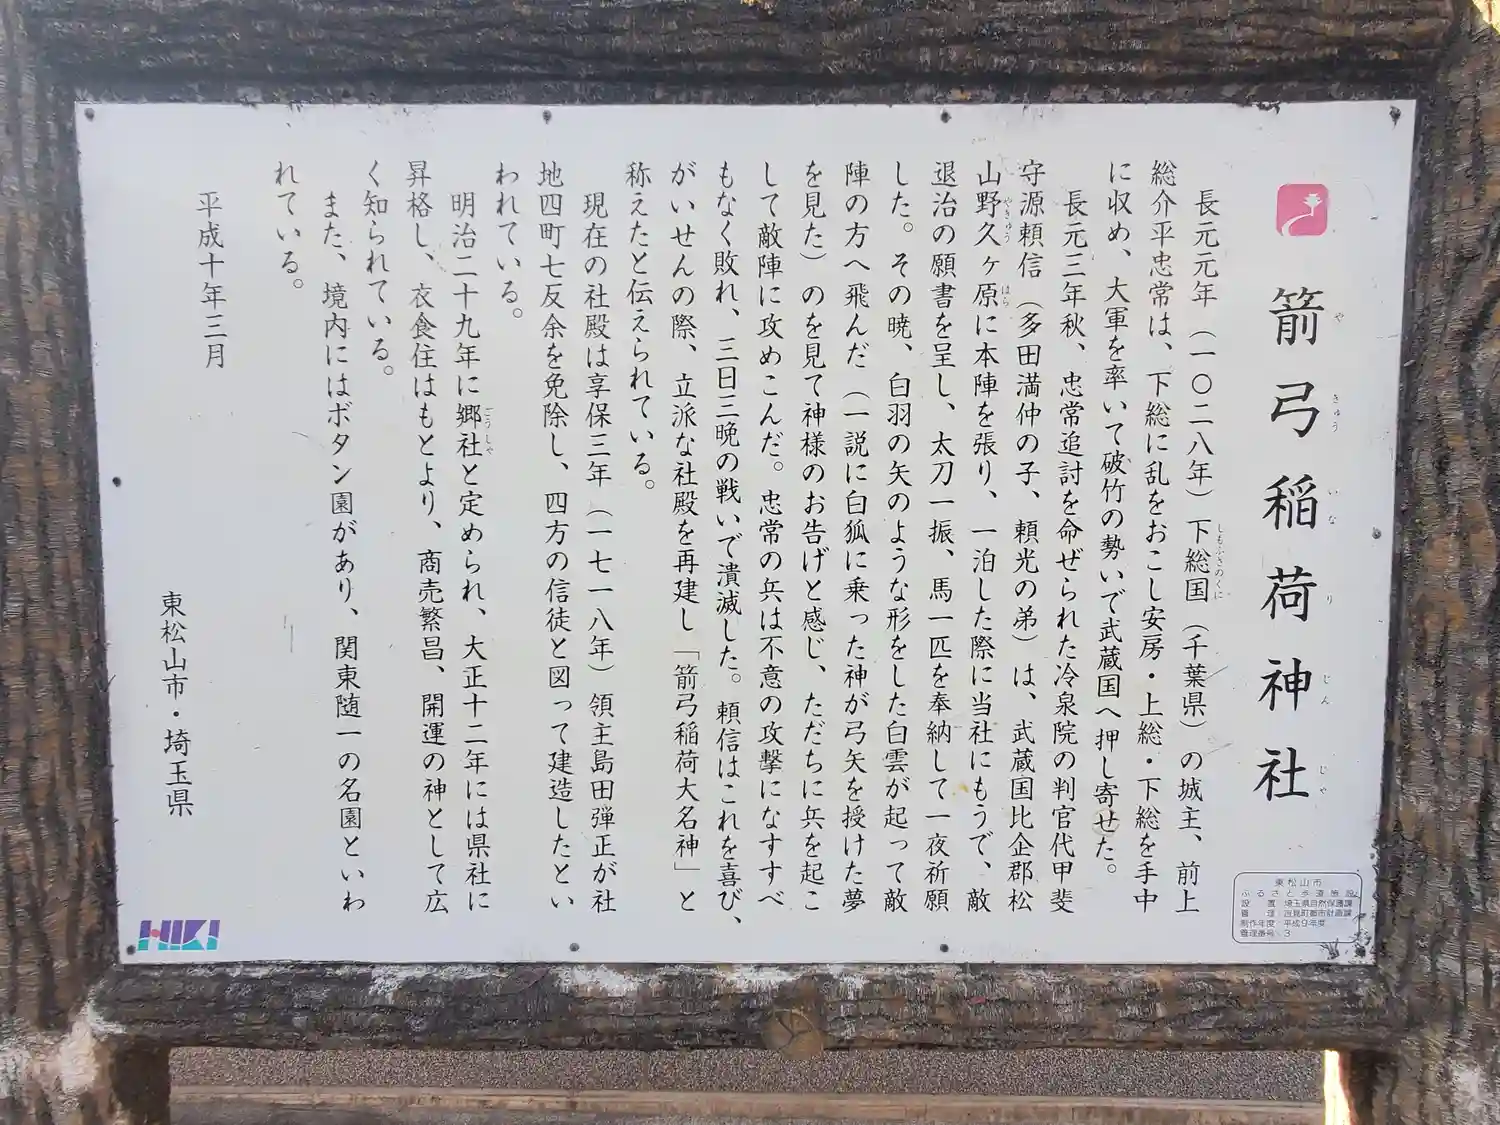 箭弓稲荷神社
や きゅう いな り じん じゃ
長元元年（一〇二八年）下総国（千葉県）の城主、前上
しもふさのくに
総介平忠常は、下総に乱をおこし安房・上総・下総を手中
に収め、大軍を率いて破竹の勢いで武蔵国へ押し寄せた。
長元三年秋、忠常追討を命ぜられた冷泉院の判官代甲斐
守源頼信（多田満仲の子、頼光の弟）は、武蔵国比企郡松
山野久ヶ原に本陣を張り、一泊した際に当社にもうで、敵
やきゅう はら
退治の願書を呈し、太刀一振、馬一匹を奉納して一夜祈願
した。その暁、白羽の矢のような形をした白雲が起って敵
陣の方へ飛んだ（一説に白狐に乗った神が弓矢を授けた夢
を見た）のを見て神様のお告げと感じ、ただちに兵を起こ
して敵陣に攻めこんだ。忠常の兵は不意の攻撃になすすべ
もなく敗れ、三日三晩の戦いで潰滅した。頼信はこれを喜び、
がいせんの際、立派な社殿を再建し「箭弓稲荷大名神」と
称えたと伝えられている。
現在の社殿は享保三年（一七一八年）領主島田弾正が社
地四町七反余を免除し、四方の信徒と図って建造したとい
われている。
明治二十九年に郷社と定められ、大正十二年には県社に
ごうしゃ
昇格し、衣食住はもとより、商売繁昌、開運の神として広
く知られている。
また、境内にはボタン園があり、関東随一の名園といわ
れている。
平成十年三月
東松山市・埼玉県
HIKI
東松山市
ふるさと歩道施設
設置 埼玉県自然保護課
管理
制作年度 平成9年度
管理番号 3